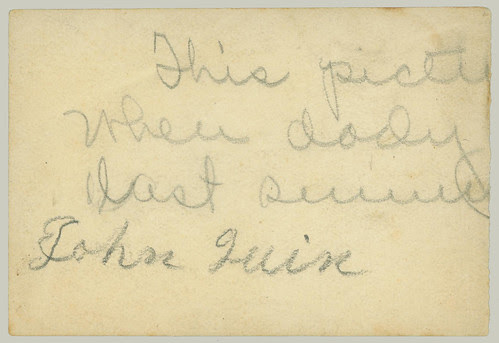 This pictu
when dody
last summe
John Quin